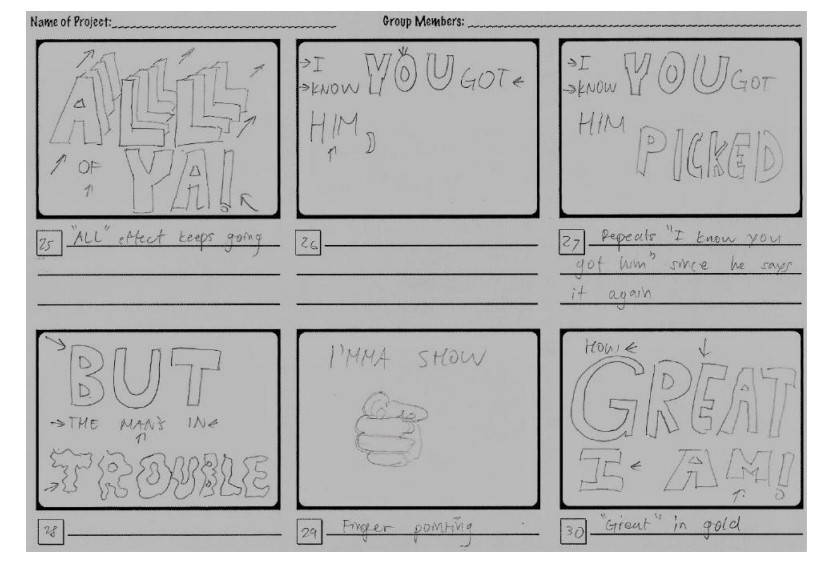 Name of Project: Group Members:
ALL
OF
YA!
25 "ALL" effect keeps going
I
KNOW YOU GOT
HIM,
26
I
KNOW YOU GOT
HIM PICKED
27 Repeats "I know you
got him" since he says
it again
BUT
THE MAN'S IN
TROUBLE
28
I'MMA SHOW
29 Finger pointing
HOW
GREAT
I AM!
30 "Great" in gold